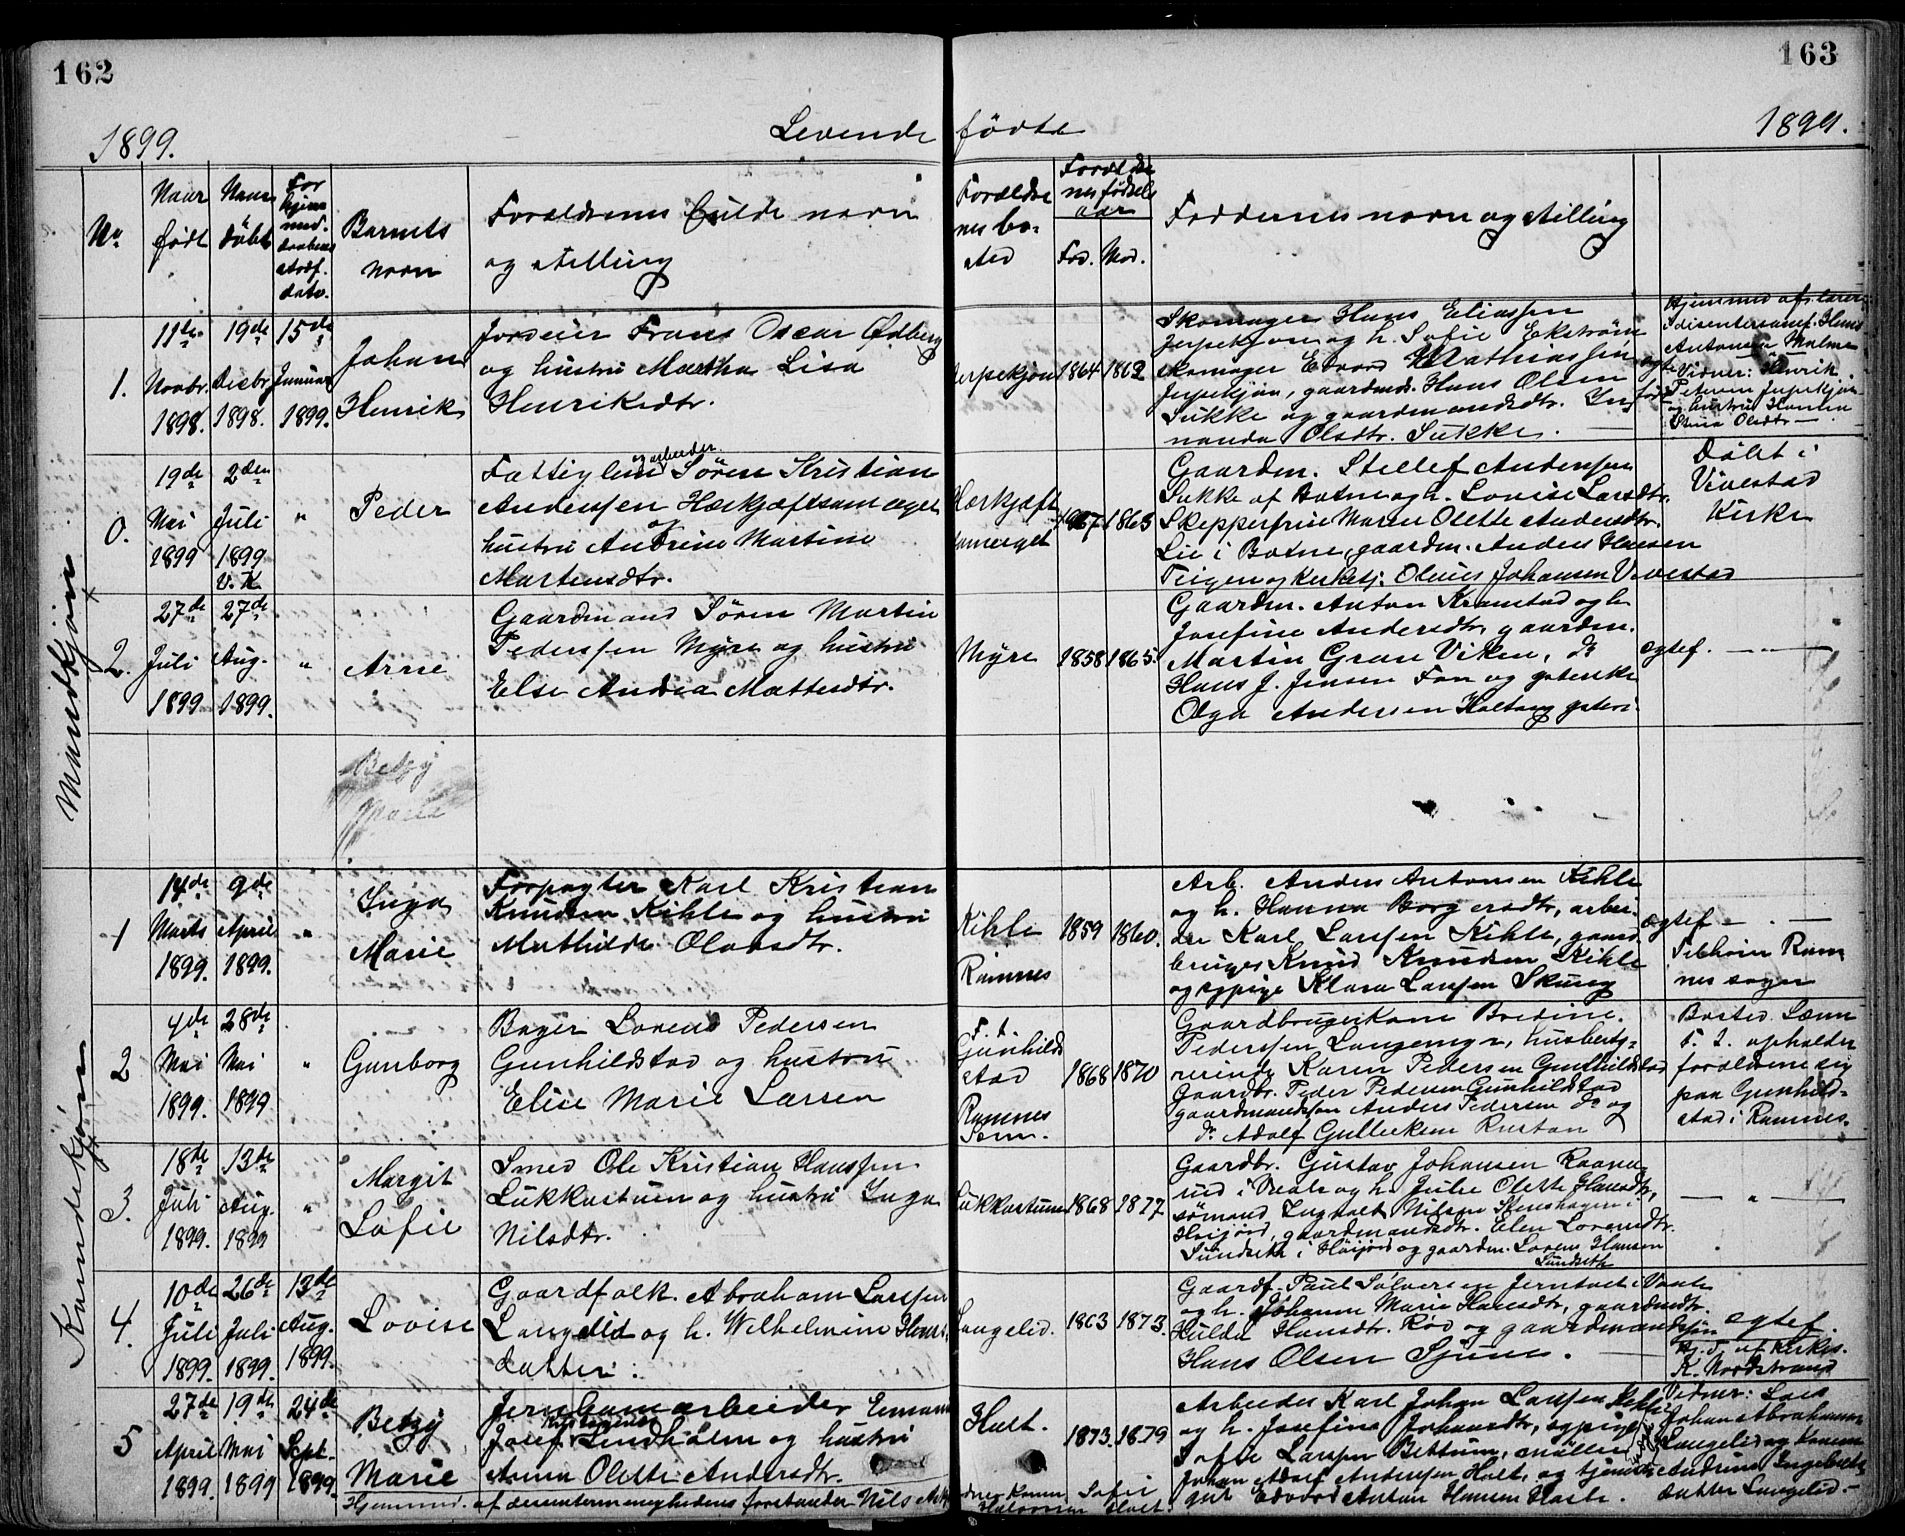 162
163
1899.
Levende fødte
1899.
No
Naar født
Naar døbt
For hjemmed. daabens stadf. dato.
Barnets navn
Forældrenes fulde navn og stilling
Forældrenes bosted
Forældrenes fødselsaar
Fad. Mod.
Faddernes navn og stilling
Mandkjøn
1.
11te Novbr. 1898.
19de Desbr. 1898.
15de Januar 1899.
Johan Henrik
Jordeier Frans Oscar Ødberg
og hustru Martha Lisa
Henriksdtr.
Jerpekjøn
1864
1862
Skomager Hans Eliassen
Jerpekjøn og h. Sofie Ekstrøm
skomager Edvard Mathiassen
Jerpekjøn, gaardmd. Hans Olsen
Sukke og gaardmandsdtr.
Olsdtr. Sukke.
Hjemmed. af
disentersamf. Hans
Antonsen Malmø
Vidner: Henrik
Petersen Jerpekjøn
og hustru
Stina Olsdtr
0.
19de Mai 1899
2den Juli 1899 V. K
"
Peder
Fattiglem og arbeider. Søren Kristian
Anderssen Hærkjæftsameiet
hustru Andrine Martine
Martensdtr.
Hærkjæft sameiet
1867
1863
Gaardm. Stillef Anderssen
Sukke af Botne og h. Lovise Larsdtr.
Maren Olette Andersdtr.
Lie i Botne, gaardm. Anders Hansen
Teigen og kirketj. Olaus Johansen Vivestad
Døbt i
Vivestad
Kirke
2.
27de Juli 1899
27de Aug. 1899.
"
Arne
Gaardmand Søren Martin
Pederssen Myre og hustru
Else Andrea Mattesdtr.
Myre
1858
1865.
Gaardm. Anton Kramstad og h.
Josefine Andersdtr, gaardm.
Martin Gran Viken, do
Hans J. Jensen Fon og
Olga Andersen
egtef.
Betzy
Marie
Kvindekjøn
1
14de Marts 1899.
9de April 1899.
"
Inga
Marie
Forpagter Karl Kristian
Knudsen Kihle og hustru
Mathilde Olavsdtr.
Kihle
Ramnes
1859
1860.
Arb. Anders Antonsen Kihle
og h. Hanna Borgersdtr, arbei-
der Karl Larssen Kihle, gaard
bruger Knud Knudsen Kihle
og sypige Klara Larssen Skung
egtef
Tilhører Ram
nes sogn
2
4de Mai 1899.
28de Mai 1899
"
Gunborg
Bager Lorens Pedersen
Gunhildstad og hustru
Elise Marie Larsen
F. t.
Gunhild
stad
Ramnes
Sem.
1868
1870
Gaardbrugerkone Bredine
Pederssen Langemyr, husbesty-
rerinde Karen Pedersen Gunhildstad
Gaardbr. Peder Pedersen Gunhildstad
gaardmandssøn Anders Pedersen do og
do Adolf Gulliksen Rustan
Bosted Sæm
F. t. opholder
forældrene sig
paa Gunhild-
stad i Ramnes.
3.
18de Juli 1899.
13de Aug. 1899
"
Margit
Sofie
Smed Ole Kristian Hanssen
Lukkastuen og hustru Inga
Nilsdtr.
Lukkastuen
1868
1877
Gaardbr. Gustav Johansen Raana-
rud i Vaale og h. Julie Olette Hansdtr,
sømand Nilsen
Høijord, gaardmandsdtr. Elen Lorensdtr.
Sundseth i Høijord og gaardm. Lorens Hansen
Sundseth
"
4.
10de Juli 1899.
26de Juli 1899.
13de Aug. 1899.
Lovise
Gaardfolk Abraham Larssen
Langelid og h. Wilhelmine Hans-
datter.
Langelid.
1863
1873.
Gaardf. Paul Sølversen
og h. Johanne Marie Hansdtr, gaardmdtr.
Hulda Hansdtr. Rød og gaardmandssøn
Hans Olsen
egtef.
Hj. D. af Kirkes.
K. Nordstrand
Vidner: Lars
Johan Abrahamsen
Langelid og Konen
Andrine Ingebrets
datter Langelid.
5
27de April 1899.
19de Mai 1899
24de Sept. 1899.
Betzy
Marie
Jernbanearbeider
Josef Lindholm og hustru
Anna Olette Andersdtr.
Holt.
1873.
1879
Arbeider Karl Johan Larssen
og h. Josefine Johansdtr, sypige
Sofie Larssen Bettum, møller
Johan Adolf Anderssen Holt, og tjeneste
gut Edvard Anton Hansen
Hjemmed. af desentermenighedens forstander Nils
Konen Sofie
Halvorsen Holt.